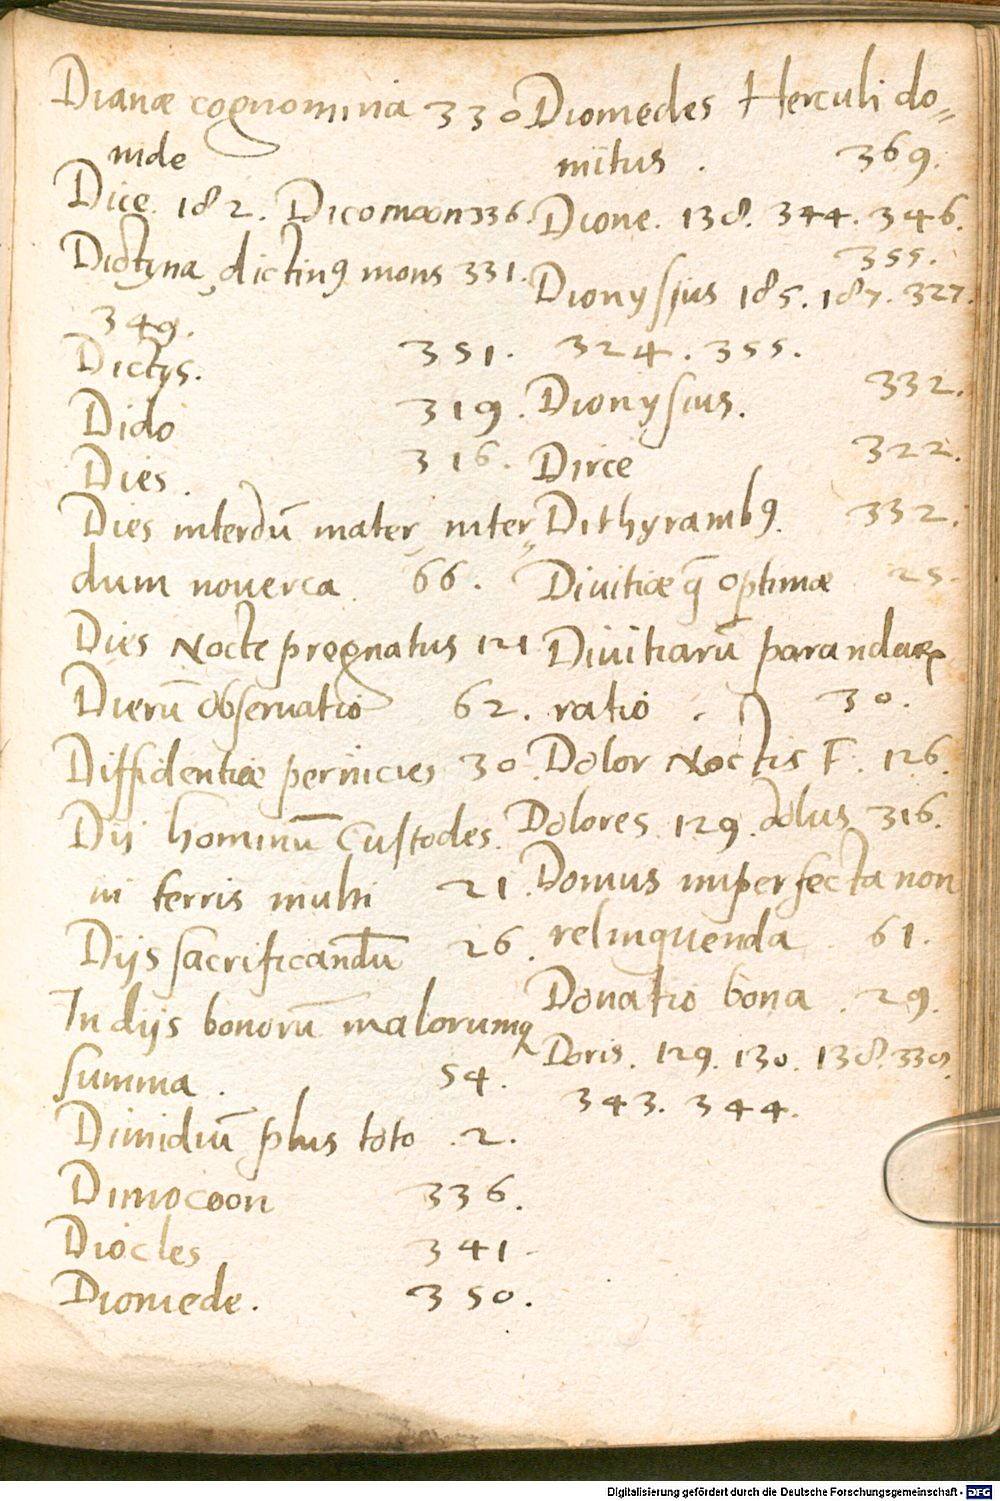 Dianæ cognomina 330
inde
Dice. 182. Dicomoon 336.
Dictyna, dictinꝰ mons 331.
349.
Dictys. 351.
Dido 319.
Dies. 316.
Dies interdū mater, inter„
dum nouerca. 66.
Dies Nocte pregnatus 121
Dierū obseruatio 62.
Diffidentiæ pernicies 30.
Dij hominū Custodes.
in terris multi 21.
Dijs sacrificandū 26.
In dijs bonorū malorumq̃
summa. 54.
Dimidiū plus toto. 2.
Dimocoon 336.
Diocles 341.
Diomede. 350.
Diomedes Herculi do„
mitus. 369.
Dione. 138. 344. 346.
355.
Dionysius 185. 187. 327.
324. 355.
Dionysius. 332.
Dirce 322.
Dithyrambꝰ. 332.
Diuitiæ q̄ optimæ 25.
Diuitiarū parandaꝝ
ratio. 30.
Dolor Noctis F. 126.
Dolores. 129. dolus 316.
Domus imperfecta non
relinquenda. 61.
Donatio bona. 29.
Doris. 129. 130. 138. 330.
343. 344.
Digitalisierung gefördert durch die Deutsche Forschungsgemeinschaft - DFG